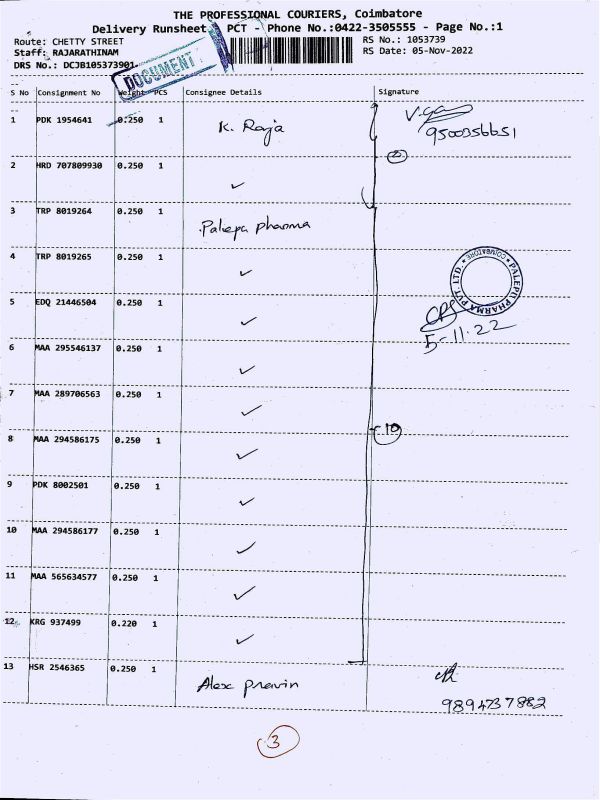 THE PROFESSIONAL COURIERS, Coimbatore
Delivery Runsheet PCT - Phone No.:0422-3505555 - Page No.:1
Route: CHETTY STREET
RS No.: 1053739
Staff: RAJARATHINAM
RS Date: 05-Nov-2022
DRS No.: DCJB105373901
DOCUMENT
S No Consignment No Weight PCS Consignee Details Signature
1 PDK 1954641 0.250 1 K. Raja
9500356651
2
2 HRD 707809930 0.250 1 ✓
3 TRP 8019264 0.250 1 Palepu pharma
4 TRP 8019265 0.250 1 ✓
PALEPU PHARMA PVT. LTD. * COIMBATORE *
5 EDQ 21446504 0.250 1 ✓
5-11-22
6 MAA 295546137 0.250 1 ✓
7 MAA 289706563 0.250 1 ✓
10
8 MAA 294586175 0.250 1 ✓
9 PDK 8002501 0.250 1 ✓
10 MAA 294586177 0.250 1 ✓
11 MAA 565634577 0.250 1 ✓
12 KRG 937499 0.220 1 ✓
13 HSR 2546365 0.250 1 Alex pravin
9894737882
3